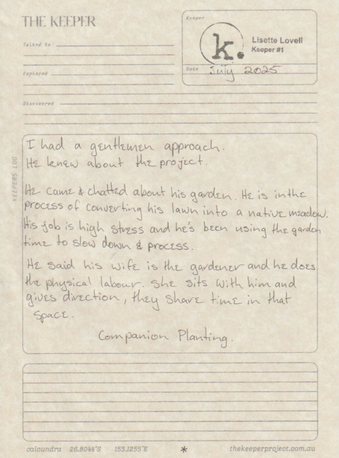 THE KEEPER
Keeper
k.
Lisette Lovell
Keeper #1
Talked to
Date July 2025
Explored
Discovered
KEEPERS LOG
I had a gentlemen approach.
He knew about the project.
He came & chatted about his garden. He is in the
process of converting his lawn into a native meadow.
His job is high stress and he's been using the garden
time to slow down & process.
He said his wife is the gardener and he does
the physical labour. She sits with him and
gives direction, they share time in that
space.
Companion Planting.
caloundra 26.8044°S 153.1255°E * thekeeperproject.com.au